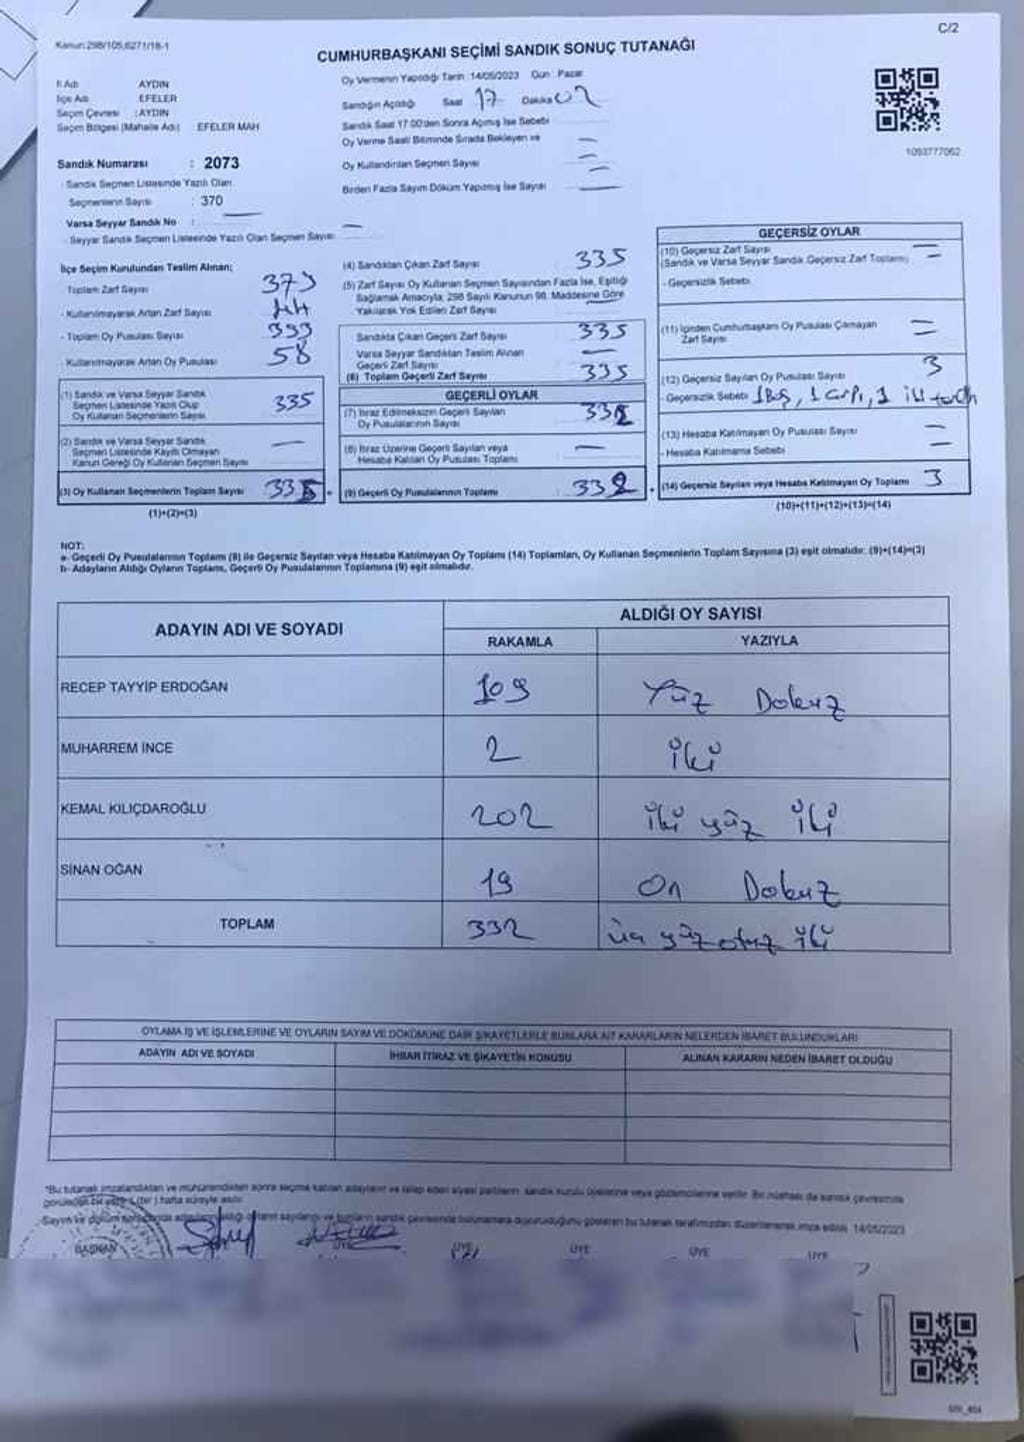 C/2
Kanun:298/105,6271/18-1
CUMHURBAŞKANI SEÇİMİ SANDIK SONUÇ TUTANAĞI
İl Adı AYDIN
İlçe Adı EFELER
Seçim Çevresi : AYDIN
Seçim Bölgesi (Mahalle Adı) EFELER MAH
Oy Vermenin Yapıldığı Tarih :14/05/2023 Gün : Pazar
Sandığın Açıldığı Saat 17 Dakika 02
Sandık Saat 17:00'den Sonra Açılmış İse Sebebi
Oy Verme Saati Bitiminde Sırada Bekleyen ve
Oy Kullandırılan Seçmen Sayısı —
Birden Fazla Sayım Döküm Yapılmış İse Sayısı —
1093777062
Sandık Numarası : 2073
- Sandık Seçmen Listesinde Yazılı Olan
Seçmenlerin Sayısı : 370
Varsa Seyyar Sandık No : —
- Seyyar Sandık Seçmen Listesinde Yazılı Olan Seçmen Sayısı —
İlçe Seçim Kurulundan Teslim Alınan;
- Toplam Zarf Sayısı
- Kullanılmayarak Artan Zarf Sayısı 44
- Toplam Oy Pusulası Sayısı 393
- Kullanılmayarak Artan Oy Pusulası 58
(1) Sandık ve Varsa Seyyar Sandık
Seçmen Listesinde Yazılı Olup
Oy Kullanan Seçmenlerin Sayısı 335
(2) Sandık ve Varsa Seyyar Sandık
Seçmen Listesinde Kayıtlı Olmayan
Kanun Gereği Oy Kullanan Seçmen Sayısı —
(3) Oy Kullanan Seçmenlerin Toplam Sayısı 335
(1)+(2)=(3)
(4) Sandıktan Çıkan Zarf Sayısı 335
(5) Zarf Sayısı Oy Kullanan Seçmen Sayısından Fazla İse, Eşitliği
Sağlamak Amacıyla, 298 Sayılı Kanunun 98. Maddesine Göre
Yakılarak Yok Edilen Zarf Sayısı
Sandıkta Çıkan Geçerli Zarf Sayısı 335
Varsa Seyyar Sandıktan Teslim Alınan
Geçerli Zarf Sayısı —
(6) Toplam Geçerli Zarf Sayısı 335
GEÇERLİ OYLAR
(7) İtiraz Edilmeksizin Geçerli Sayılan
Oy Pusulalarının Sayısı 332
(8) İtiraz Üzerine Geçerli Sayılan veya
Hesaba Katılan Oy Pusulası Toplamı —
(9) Geçerli Oy Pusulalarının Toplamı 332
GEÇERSİZ OYLAR
(10) Geçersiz Zarf Sayısı
(Sandık ve Varsa Seyyar Sandık Geçersiz Zarf Toplamı) —
- Geçersizlik Sebebi
(11) İçinden Cumhurbaşkanı Oy Pusulası Çıkmayan
Zarf Sayısı —
(12) Geçersiz Sayılan Oy Pusulası Sayısı 3
- Geçersizlik Sebebi 1 Boş, 1
(13) Hesaba Katılmayan Oy Pusulası Sayısı —
- Hesaba Katılmama Sebebi —
(14) Geçersiz Sayılan veya Hesaba Katılmayan Oy Toplamı 3
(10)+(11)+(12)+(13)=(14)
NOT:
a- Geçerli Oy Pusulalarının Toplamı (9) ile Geçersiz Sayılan veya Hesaba Katılmayan Oy Toplamı (14) Toplamları, Oy Kullanan Seçmenlerin Toplam Sayısına (3) eşit olmalıdır. (9)+(14)=(3)
b- Adayların Aldığı Oyların Toplamı, Geçerli Oy Pusulalarının Toplamına (9) eşit olmalıdır.
ADAYIN ADI VE SOYADI ALDIĞI OY SAYISI
RAKAMLA YAZIYLA
RECEP TAYYİP ERDOĞAN 109 Yüz Dokuz
MUHARREM İNCE 2 iki
KEMAL KILIÇDAROĞLU 202 iki yüz iki
SİNAN OĞAN 19 On Dokuz
TOPLAM 332 üç yüz otuz iki
OYLAMA İŞ VE İŞLEMLERİNE VE OYLARIN SAYIM VE DÖKÜMÜNE DAİR ŞİKAYETLERLE BUNLARA AİT KARARLARIN NELERDEN İBARET BULUNDUKLARI
ADAYIN ADI VE SOYADI İHBAR İTİRAZ VE ŞİKAYETİN KONUSU ALINAN KARARIN NEDEN İBARET OLDUĞU
*Bu tutanak imzalandıktan ve mühürlendikten sonra seçime katılan adayların ve talep eden siyasi partilerin sandık kurulu üyelerine veya gözlemcilerine verilir. Bir nüshası da sandık çevresinde
görülebilen bir yere 1 (bir) hafta süreyle asılır.
bu tutanak tarafımızdan düzenlenerek imza edildi. 14/05/2023
BAŞKAN ÜYE ÜYE ÜYE ÜYE ÜYE